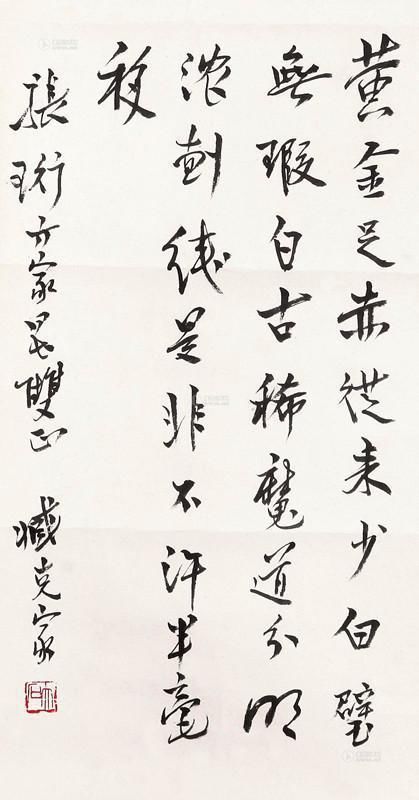 黄金足赤從来少白璧
無瑕自古稀魔道分明
浓劃线是非不许半毫
移
張珩方家 雙正
臧克家